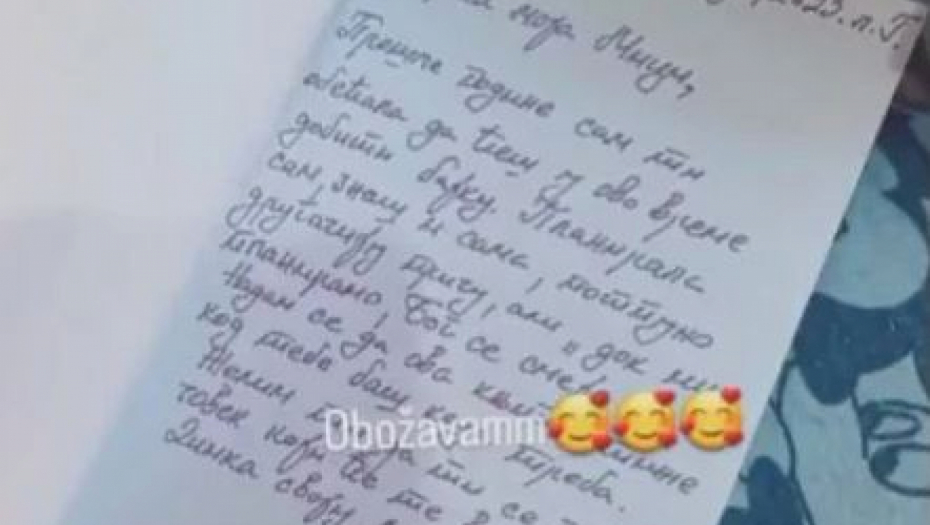 2023. л. Г.
моја Мици,
Прошле године сам ти
обећала да ћеш у ово време
добити барку. Планирала
сам, знаш и сама, потпуно
другачију причу, али "док ми
планирамо, Бог се смеје
Надам се да ова
код тебе баш ка треба.
Желим ти да ти се
човек који ће те
Динка своју
Obožavamm